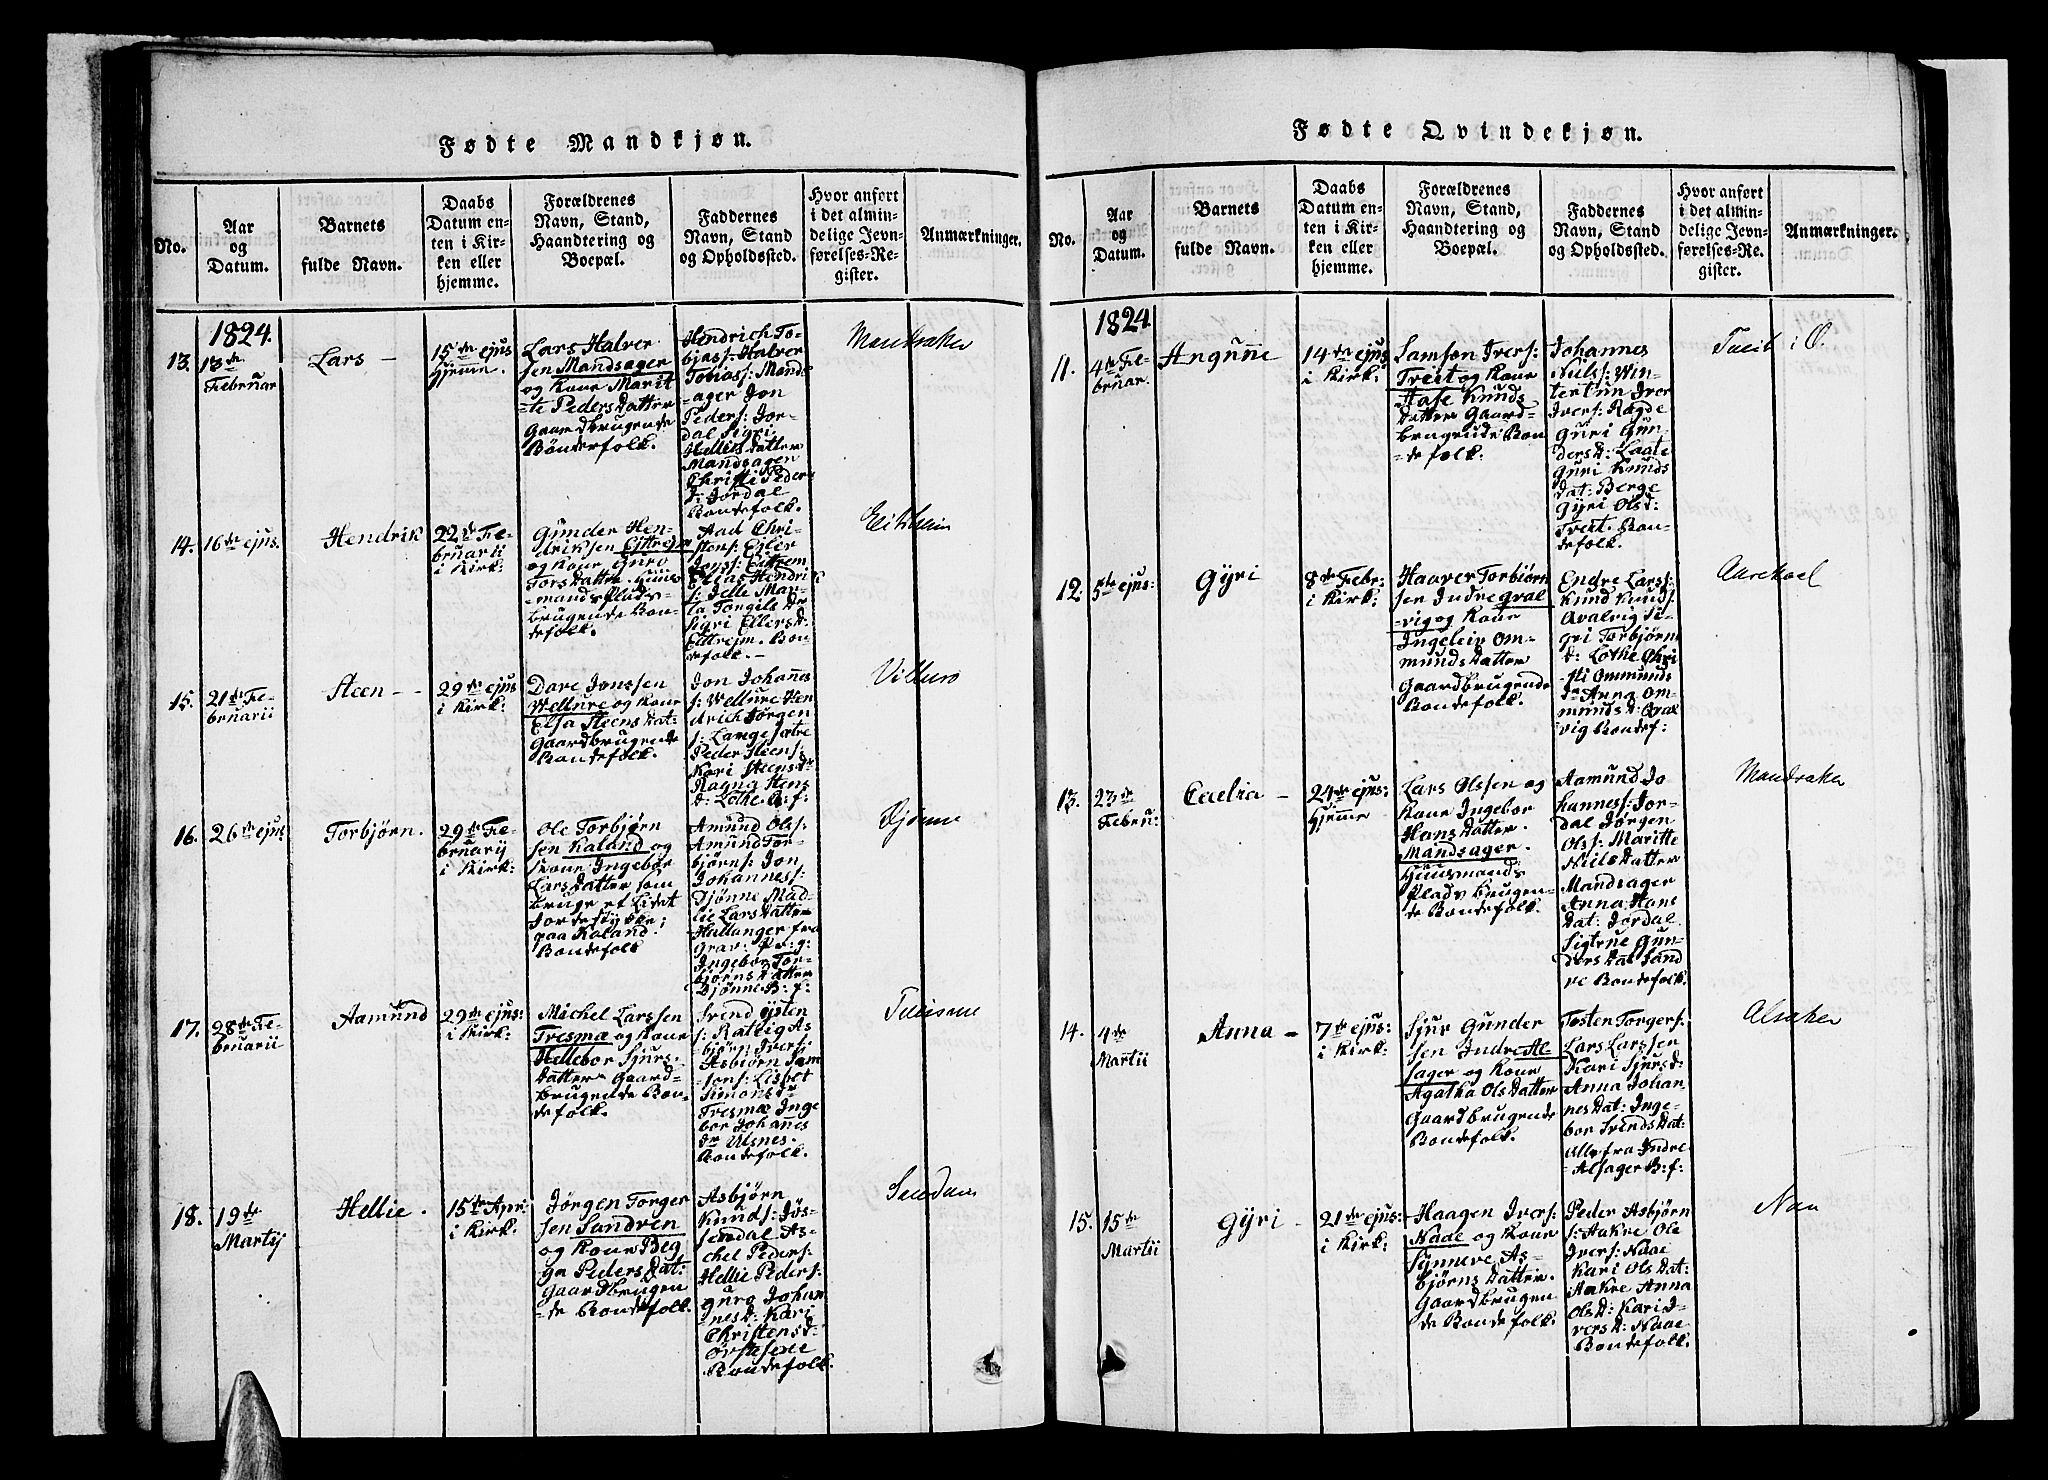 Fødte Mandkjøn.
No.
Aar
og
Datum.
Barnets
fulde Navn.
Daabs
Datum en-
ten i Kir-
ken eller
hjemme.
Forældrenes
Navn, Stand,
Haandtering og
Boepæl.
Faddernes
Navn, Stand
og Opholdssted.
Hvor anført
i det almin-
delige Jevn-
førelses-Re-
gister.
Anmærkninger.
1824.
13.
13de
Februar
Lars —
15de ejus
Hjeme
Lars Halver
sen Mandsager
og Kone Marit
te Peders Datter
Gaardbrugende
Bøndefolk.
Hendrich To-
bjass: Halver
Tobiass: Mands
ager Jon
Peders: Jor-
dal Sigri
Hellers Datter
Mandsagen
Christi Peder
d: Jordal
Bondefolk.
Mandraker
14.
16de ejus.
Hendrik
22d Fe-
bruarii
i Kirk:
Gunder Hen-
driksen Eittrejm
og Kone Guro
Tors Datter. Huus
mands Plads-
brugende Bon-
defolk.
Aad Chri-
stens: Eiler
Jons: Eittrem
Elias Hendrik
s: Jelle Mar-
ta Torgils Dr
Sigri Ellers d:
Eittrejm. Bon-
defolk. —
Eitrheim
15.
21de Fe-
bruarii
Steen —
29de ejus
i Kirk:
Dare Jonssen
Vellure og Kone
Elsa Steens Dat:
Gaardbrugende
Bondefolk.
Jon Johanes
s: Vellure Hen
drich Jørgen
s: Langesætre
Peder Steens:
Kari Steens dr
Ragna Hens
d: Lothe B: f:
Villure
16.
26de ejus
Torbjørn.
29de Fe-
bruarij
i Kirk:
Ole Torbjørn
sen Kaland og
Kone Ingebor
Lars Datter som
bruge et Lidet
Jordestykke
paa Kaland.
Bondefolk
Amund Ols:
Amund Tor-
bjørns: Jon
Johanness:
Djønne Mad-
lie Lars Datter
Hallanger fra
Grav: P: g:
Ingebor Tor-
bjørns Datter
Djønne B: f:
Djønne
17.
28de Fe-
bruarii
Aamund
29de ejus:
i Kirk:
Michel Larssen
Tresmæ og Kone
Hellebor Sjurs
Datter Gaard-
brugende Bon-
defolk.
Svend Østen
s: Ratvig As
bjørn Ivers:
Asbjørn Sam
sons: Lisbet
Simons dr
Tresmæ Inge
bor Johanes
dr Ulsnes.
Bondefolk.
18.
19de
Martij
Hellie.
15de Apr:
i Kirk:
Jørgen Torger
sen Sandven
og Kone Beg
ga Peders Dat:
Gaardbrugen
de Bondefolk.
Asbjørn
Knuds: Jøs-
sendal As-
chel Peders:
Hellie Peders:
Guro Johan
nes d: Kari
Christens d:
Bondefolk.
Sandven
Fødte Qvindekjøn.
No.
Aar
og
Datum.
Barnets
fulde Navn.
Daabs
Datum en-
ten i Kir-
ken eller
hjemme.
Forældrenes
Navn, Stand,
Haandtering og
Boepæl.
Faddernes
Navn, Stand
og Opholdssted.
Hvor anført
i det almin-
delige Jevn-
førelses-Re-
gister.
Anmærkninger.
1824
11.
4de Fe-
bruar.
Angune
14de ejus
i Kirk:
Samson Ivers:
Treit og Kone
Aase Knuds
Datter Gaard-
brugende Bon
defolk.
Johannes
Niels: Win-
tertun Iver
Ivers: Ragde
Guri Gun-
ders d: Laate
Guri Knuds
Dat: Berge
Gyri Ols d:
Treit. Bon-
defolk.
Tveit i O.
12.
5te ejus:
Gyri
8de Febr
i Kirk:
Haaver Torbiørn
sen Indre Qval
vig og Kone
Ingeleiv Om-
munds Datter
Gaardbrugende
Bondefolk.
Endre Lars:
Knud Knuds:
Qvalvig Si-
gri Torbjørn
d: Lothe Chri
sti Ommunds
dr Anna Om-
munds d: Qval
vig Bondef:
13.
23de
Febru:
Caelia —
24de ejus:
Hjeme
Lars Olssen og
Kone Ingebor
Hans Datter.
Mandsager.
Huusmands
Plads brugen-
de Bondefolk.
Aamund Jo
hanness: Jor-
dal Jørgen
Ols: Maritte
Niels Datter
Mandsager
Anna Hans
Dat: Jordal
Sigtrue Gun-
ders Dat Sand
ve Bondefolk.
Mandraker
14.
4de
Martii
Anna —
7de ejus:
i Kirk:
Sjur Gunder
sen Indre Al-
sager og Kone
Agatha Ols Datter
Gaardbrugende
Bondefolk.
Tosten Torgers:
Lars Larssen
Kari Sjurs d:
Anna Johan
nes Dat: Inge-
bor Svends Dat:
Alle fra Indre
Alsager B: f:
Alsaker
15.
15de
Martii
Gyri —
21de ejus:
i Kirk:
Haagen Ivers:
Naae og Kone
Synneve As-
bjørns Datter.
Gaardbrugen
de Bondefolk.
Peder Asbjørn
s: Aakre Ole
Ivers: Naae
Kari Ols Dat:
Aakre Anna
Ols d: Kari I-
vers d: Naae
Bondefolk.
Naa